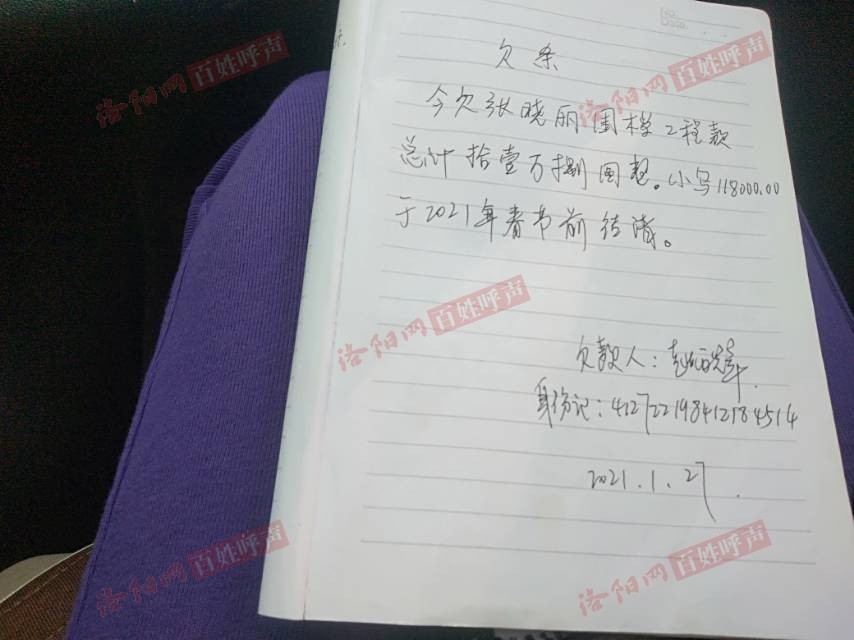 欠条
今欠张晓丽围挡工程款
总计拾壹万捌 圆整。小写118000.00
于2021年春节前结清。
欠款人：
身份记：412722198412184514
2021.1.27
洛阳网 百姓呼声
洛阳网 百姓呼声
洛阳网 百姓呼声
洛阳网 百姓呼声
洛阳网 百姓呼声